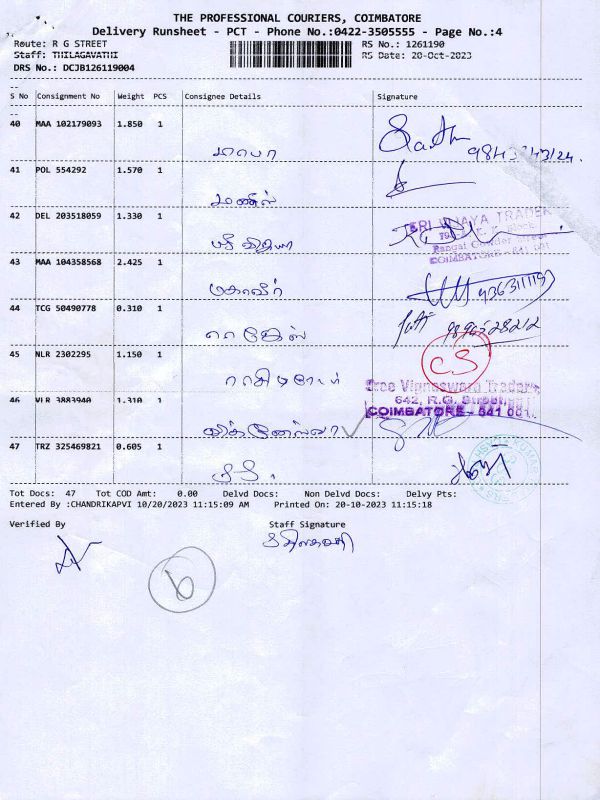 THE PROFESSIONAL COURIERS, COIMBATORE
Delivery Runsheet - PCT - Phone No.:0422-3505555 - Page No.:4
Route: R G STREET RS No.: 1261190
Staff: THILAGAVATHI RS Date: 20-Oct-2023
DRS No.: DCJB126119004
S No Consignment No Weight PCS Consignee Details Signature
40 MAA 102179093 1.850 1
41 POL 554292 1.570 1
42 DEL 203518059 1.330 1
SRI VIJAYA TRADER
COIMBATORE - 641 001
43 MAA 104358568 2.425 1
மகாவீர்
44 TCG 50490778 0.310 1
ராஜேஸ்
45 NLR 2302295 1.150 1
CS
Sree Vigneswara Traders
642, R.G. Street,
COIMBATORE - 641 001.
46 VLR 3883940 1.310 1
விக்னேஸ்வரா
47 TRZ 325469821 0.605 1
Tot Docs: 47 Tot COD Amt: 0.00 Delvd Docs: Non Delvd Docs: Delvy Pts:
Entered By :CHANDRIKAPVI 10/20/2023 11:15:09 AM Printed On: 20-10-2023 11:15:18
Verified By Staff Signature
6